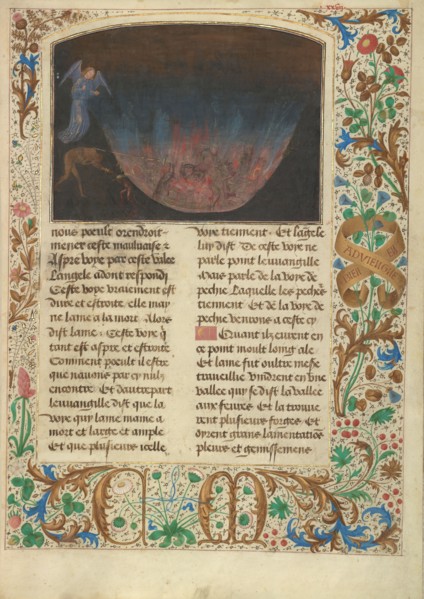 nous poeult orendroit
mener ceste mauluaise &
Aspre voye par ceste valee
Langele adont respondi
Ceste voye vraiement est
dure et estroite elle may
ne lame a la mort. Alors
dist lame. Ceste voye q̄
tant est aspre et estroite
Comment poeult il estre
que nauons par cy nulz
encontre. Et dautrepart
leuuangille dist que la
voye quy lame maine a
mort est large et ample
Et que plusieurs icelle
voye tiennent. Et lāgele
luy dist. De ceste voye ne
parle point leuuangille
Mais parle de la voye de
peche Laquelle les pechē
tiennent. Et de la voye de
peche venrons a ceste cy
Quant ilz eurent en
ce point moult loing ale
Et lame fut oultre mesē
trauellie vindrent en vne
vallee quy se dist la vallee
aux feures. Et la trouue
rent plusieurs forges. Et
oyrent grans lamentatiōs
pleurs et gemissemens
BIEN EN
ADVIENGNE
C M